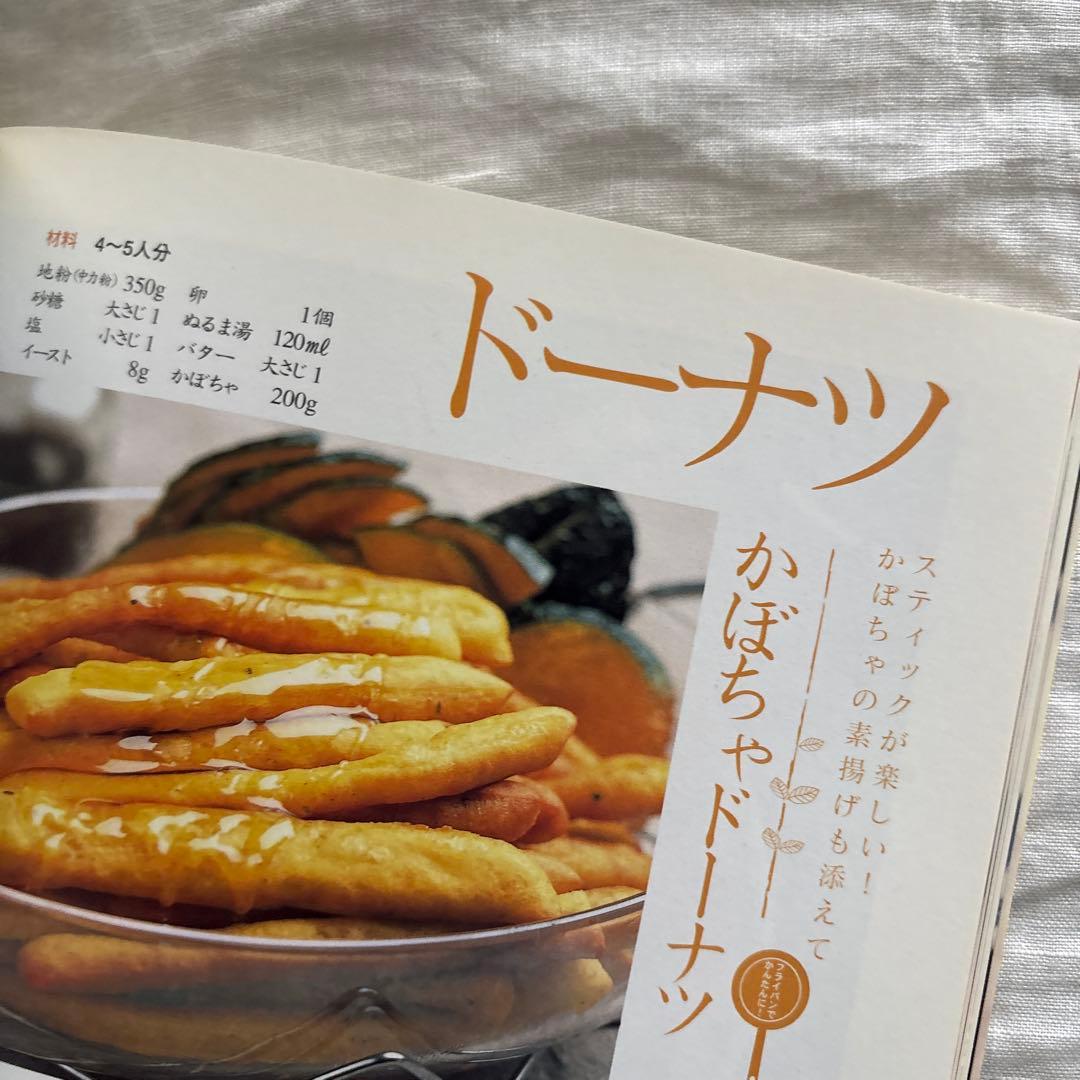 材料 4〜5人分
地粉(中力粉) 350g
砂糖 大さじ1
塩 小さじ1
イースト 8g
卵 1個
ぬるま湯 120㎖
バター 大さじ1
かぼちゃ 200g
ドーナツ
スティックが楽しい!
かぼちゃの素揚げも添えて
かぼちゃドーナツ
フライパンで
かんたんに!